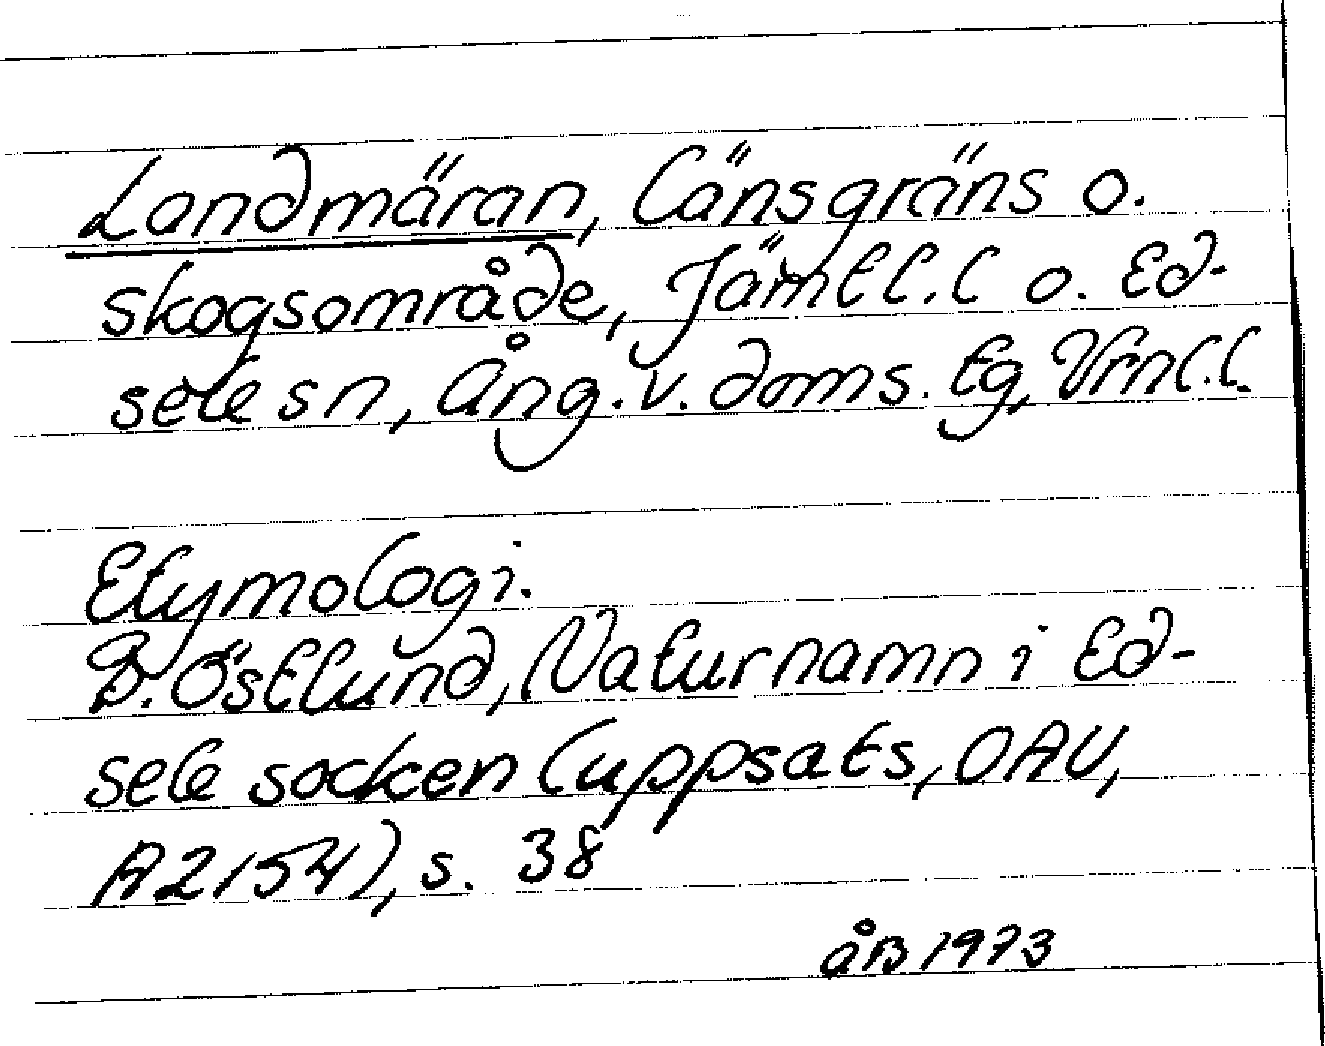 Landmäran, länsgräns o.
skogsområde, Jämtl.l o. Ed-
sele sn, Ång. v. doms. tg, Vrnl.l.
Etymologi.
B. Östlund, Naturnamn i Ed-
sele socken (uppsats, OAU,
A2154), s. 38
åB 1973